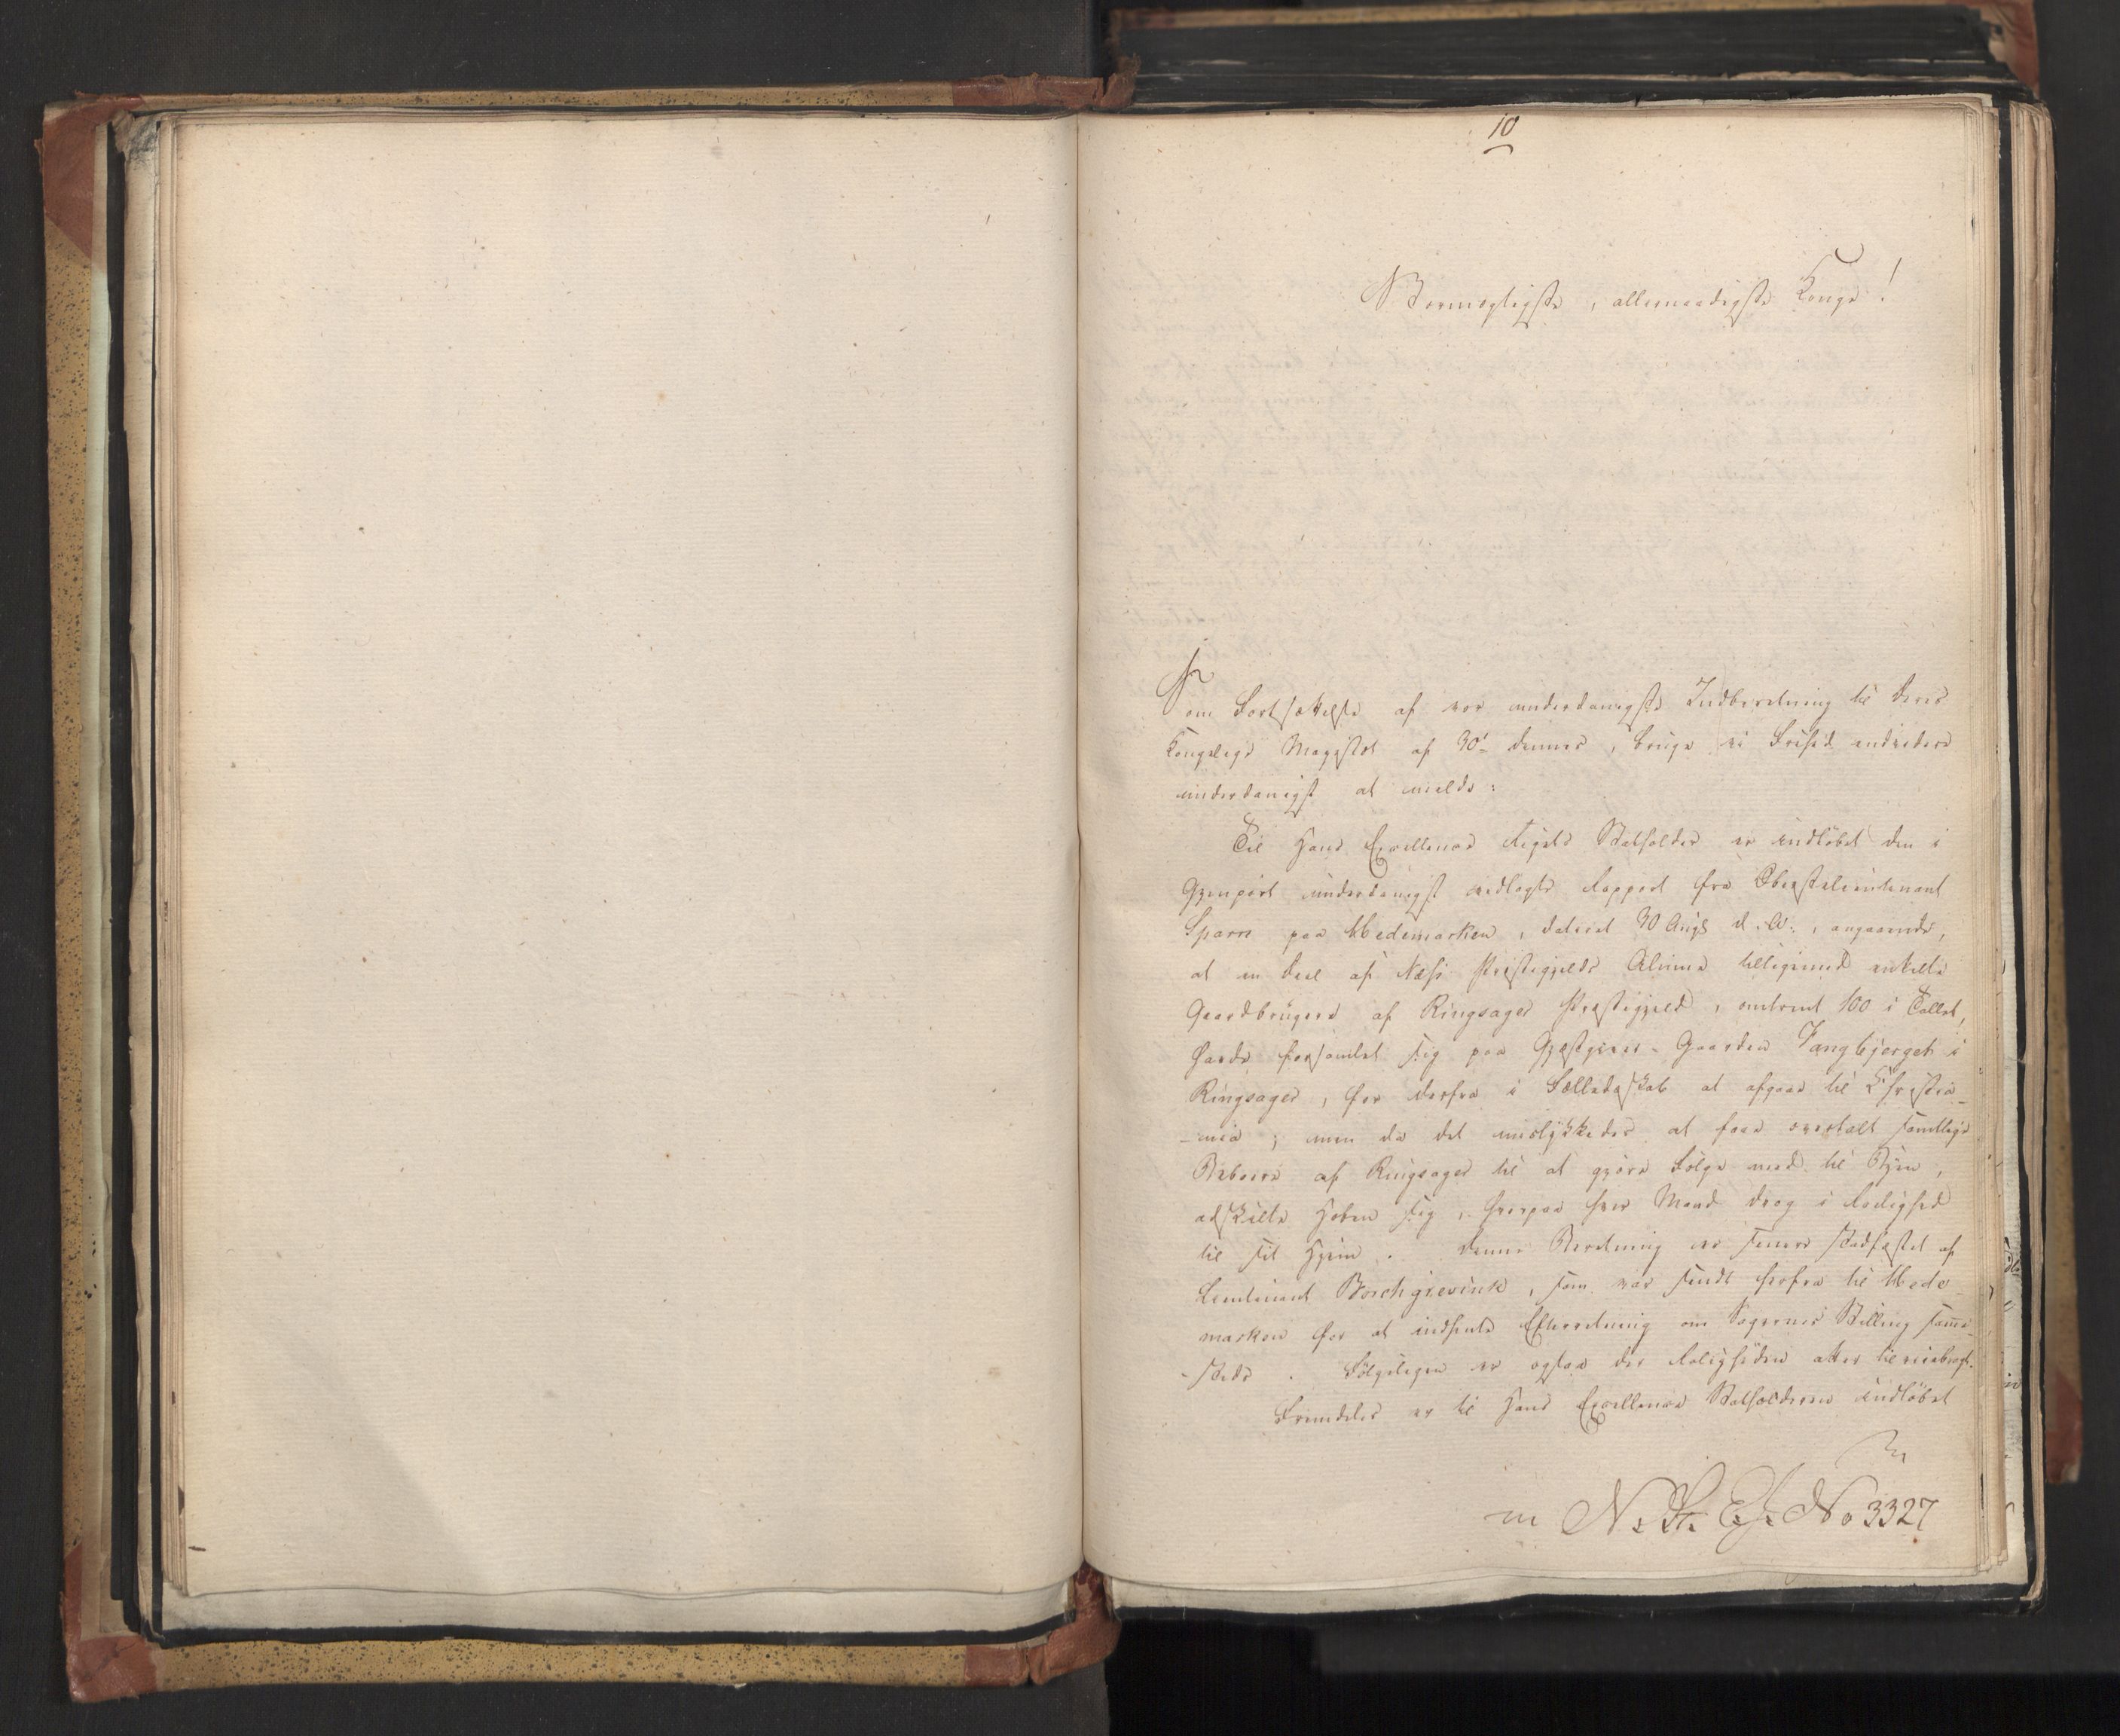 10
Stormægtigste, allernaadigste Konge!
Som Fortsættelse af vor underdanigste Indberetning til Deres
Kongelige Majestæt af 30' dennes, bruge vi Frihed endvidere
underdanigst at melde:
Til Hans Excellence Rigets Statholder er indløbet den i
Gjenpart underdanigst vedlagte Rapport fra Oberstlieutenant
Sparre paa Hedemarken, dateret 30 Augs d. A., angaaende,
at en Deel af Næss Præstegjelds Almue tilligemed enkelte
Gaardbrugere af Ringsager Præstegjeld, omtrent 100 i Tallet,
havde forsamlet sig paa Gjæstgiver-Gaarden Vangbjerget i
Ringsager, for derfra i Fælledsskab at afgaae til Christia-
-nia; men da det mislykkedes at faae overtalt samtlige
Beboere af Ringsager til at gjøre Følge med til Byen,
adskilte Hoben sig, hvorpaa hver Mand drog i Rolighed
til sit Hjem. Denne Beretning er senere stadfæstet af
Lieutenant Borchgrevink, som var sendt herfra til Hede-
marken for at indhente Efterretning om Sagernes Stilling samme-
-steds. Følgeligen er ogsaa der Roligheden atter tilveiebragt.
Fremdeles er til Hans Excellence Statholderen indløbet
N. St. E. No 3327